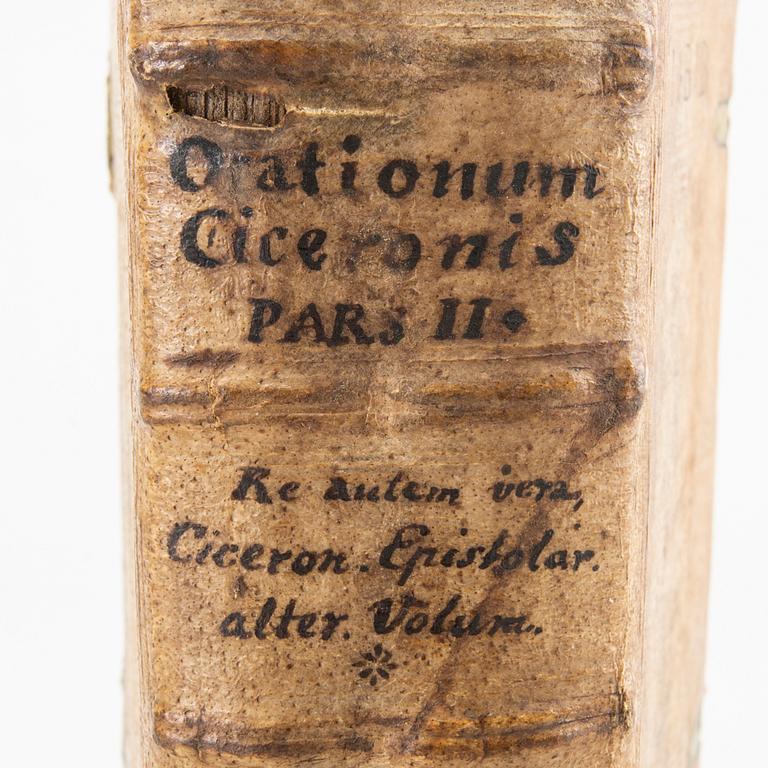 Orationum
Ciceronis
PARS II
Re autem vera,
Ciceron. Epistolar.
alter. Volum.